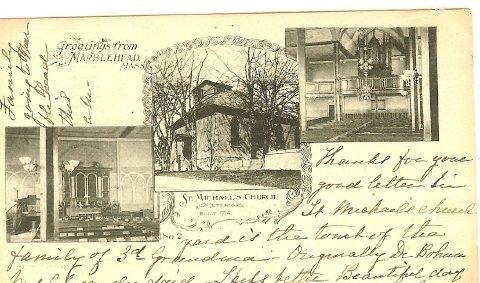 Greetings from
MARBLEHEAD,
MASS.
Family
going to
this
ST. MICHAEL'S CHURCH
AND INTERIORS,
BUILT 1714.
No 2
Thanks for your
good letter in
St Michaels church
yard is the tomb of the
family of 3d Grandma - Originally Dr Bohun
better Beautiful day